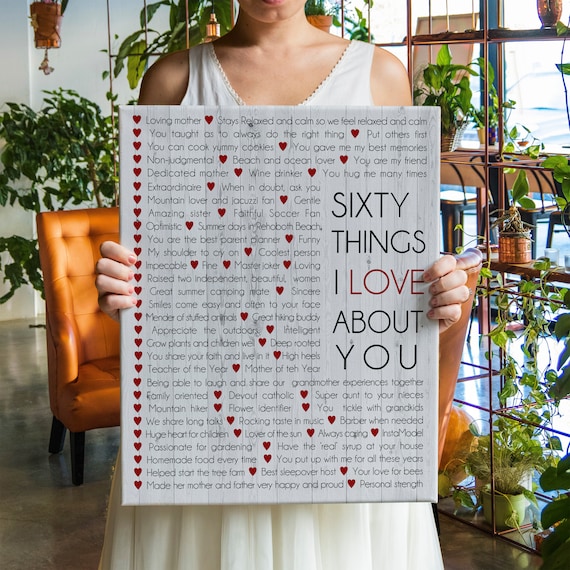 ♥ Loving mother ♥ Stays Relaxed and calm so we feel relaxed and calm
♥ You taught as to always do the right thing ♥ Put others first
♥ You can cook yummy cookies ♥ You gave me my best memories
♥ Non-judgmental ♥ Beach and ocean lover ♥ You are my friend
♥ Dedicated mother ♥ Wine drinker ♥ You hug me many times
♥ Extraordinaire ♥ When in doubt, ask you
♥ Mountain lover and jacuzzi fan ♥ Gentle
♥ Amazing sister ♥ Faithful Soccer Fan
♥ Optimistic ♥ Summer days in Rehoboth Beach
♥ You are the best parent planner ♥ Funny
♥ My shoulder to cry on ♥ Coolest person
♥ Impecable ♥ Fine ♥ Master joker ♥ Loving
♥ Raised two independent, beautiful, women
♥ Great summer camping mate ♥ Sincere
♥ Smiles come easy and often to your face
♥ Mender of stuffed animals ♥ Great hiking buddy
♥ Appreciate the outdoors ♥ Intelligent
♥ Grow plants and children well ♥ Deep rooted
♥ You share your faith and live in it ♥ High heels
♥ Teacher of the Year ♥ Mother of teh Year
SIXTY
THINGS
I LOVE
ABOUT
YOU
♥ Being able to laugh and share our grandmother experiences together
♥ Family oriented ♥ Devout catholic ♥ Super aunt to your nieces
♥ Mountain hiker ♥ Flower identifier ♥ You tickle with grandkids
♥ We share long talks ♥ Rocking taste in music ♥ Barber when needed
♥ Huge heart for children ♥ Lover of the sun ♥ Always caring ♥ InstaModel
♥ Passionate for gardening ♥ Have the real syrup at your house
♥ Homemade food every time ♥ You put up with me for all these years
♥ Helped start the tree farm ♥ Best sleepover host ♥ Your love for bees
♥ Made her mother and father very happy and proud ♥ Personal strength